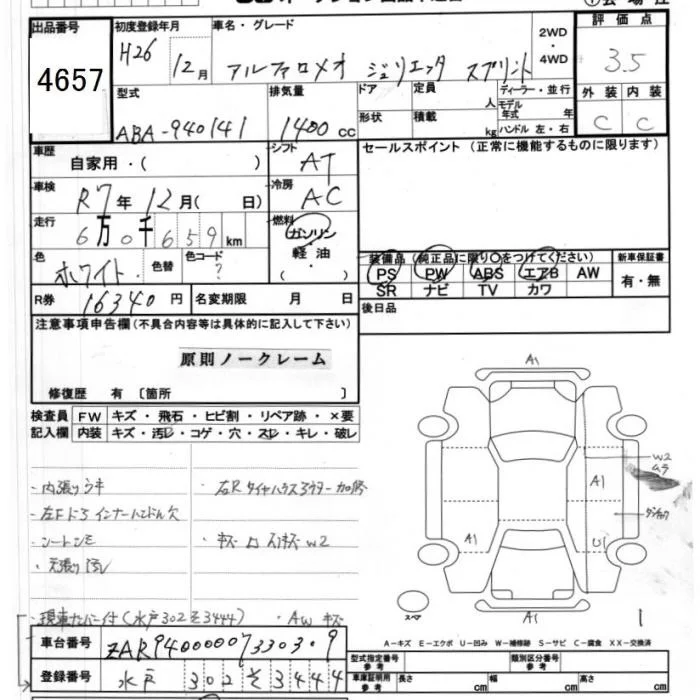 出品番号
4657
初度登録年月
H26 12月
車名・グレード
アルファロメオ ジュリエッタ スプリント
2WD
・
4WD
評価点
3.5
型式
ABA-940141
排気量
1400 cc
ドア
定員
人
形状
積載
kg
ディーラー・並行
モデル年式 年
ハンドル 左・右
外装 内装
C C
車歴
自家用・( )
シフト
AT
車検
R7年12月( 日)
冷房
AC
走行
6万0千659km
燃料
ガソリン
軽油
・( )
色
ホワイト
色替
色コード
?
R券
16340円
名変期限 月 日
セールスポイント (正常に機能するものに限ります)
装備品 (純正品に限り○をつけてください)
PS PW ABS エアB AW
SR ナビ TV カワ
新車保証書
有・無
後日品
注意事項申告欄(不具合内容等は具体的に記入して下さい)
原則ノークレーム
修復歴 有 〔箇所 〕
検査員 FW キズ・飛石・ヒビ割・リペア跡・×要
記入欄 内装 キズ・汚レ・コゲ・穴・スレ・キレ・破レ
・内張りウキ
・右Rタイヤハウスアウター加修
・左Fドアインナーハンドル欠
・シートシミ
・天張り汚レ
・現車ナンバー付(水戸302そ3444)
・AWキズ
A1
W2
ムラ
A1
A1
U1
A1
スペア
1
A-キズ E-エクボ U-凹み W-補修跡 S-サビ C-腐食 XX-交換済
車台番号
ZAR94000007330309
登録番号
水戸 302 そ 3444
型式指定番号
参考
類別区分番号
参考
車庫証明用
参考
長さ cm
幅 cm
高さ cm